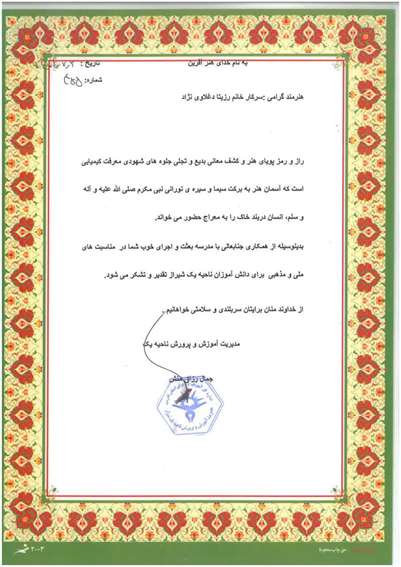 به نام خدای هنر آفرین
تاریخ:
شماره:
هنرمند گرامی :سرکار خانم رزیتا دغلاوی نژاد
راز و رمز پویای هنر و کشف معانی بدیع و تجلی جلوه های شهودی معرفت کیمیایی
است که آسمان هنر به برکت سیما و سیره ی نورانی نبی مکرم صلی الله علیه و آله
و سلم، انسان دربند خاک را به معراج حضور می خواند.
بدینوسیله از همکاری جنابعالی با مدرسه بعثت و اجرای خوب شما در مناسبت های
ملی و مذهبی برای دانش آموزان ناحیه یک شیراز تقدیر و تشکر می شود.
از خداوند منان برایتان سربلندی و سلامتی خواهانیم.
مدیریت آموزش و پرورش ناحیه یک
جمال رزاق منش
۲۰۰۳